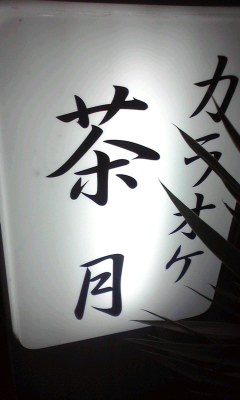 カラオケ
茶月